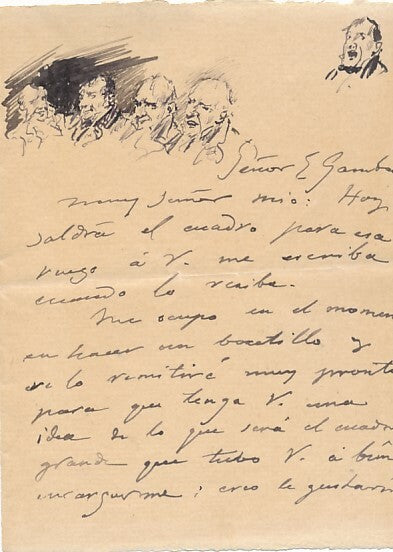 Señor E Gamba
muy señor mio: Hoy
saldrá el cuadro para esa
ruego á V. me escriba
cuando lo reciba.
Me ocupo en el momen
en hacer un bocetillo y
se lo remitiré muy pronto
para que tenga V. una
idea de lo que será el cuadro
grande que tubo V. á bien
encargarme; creo le gustaria